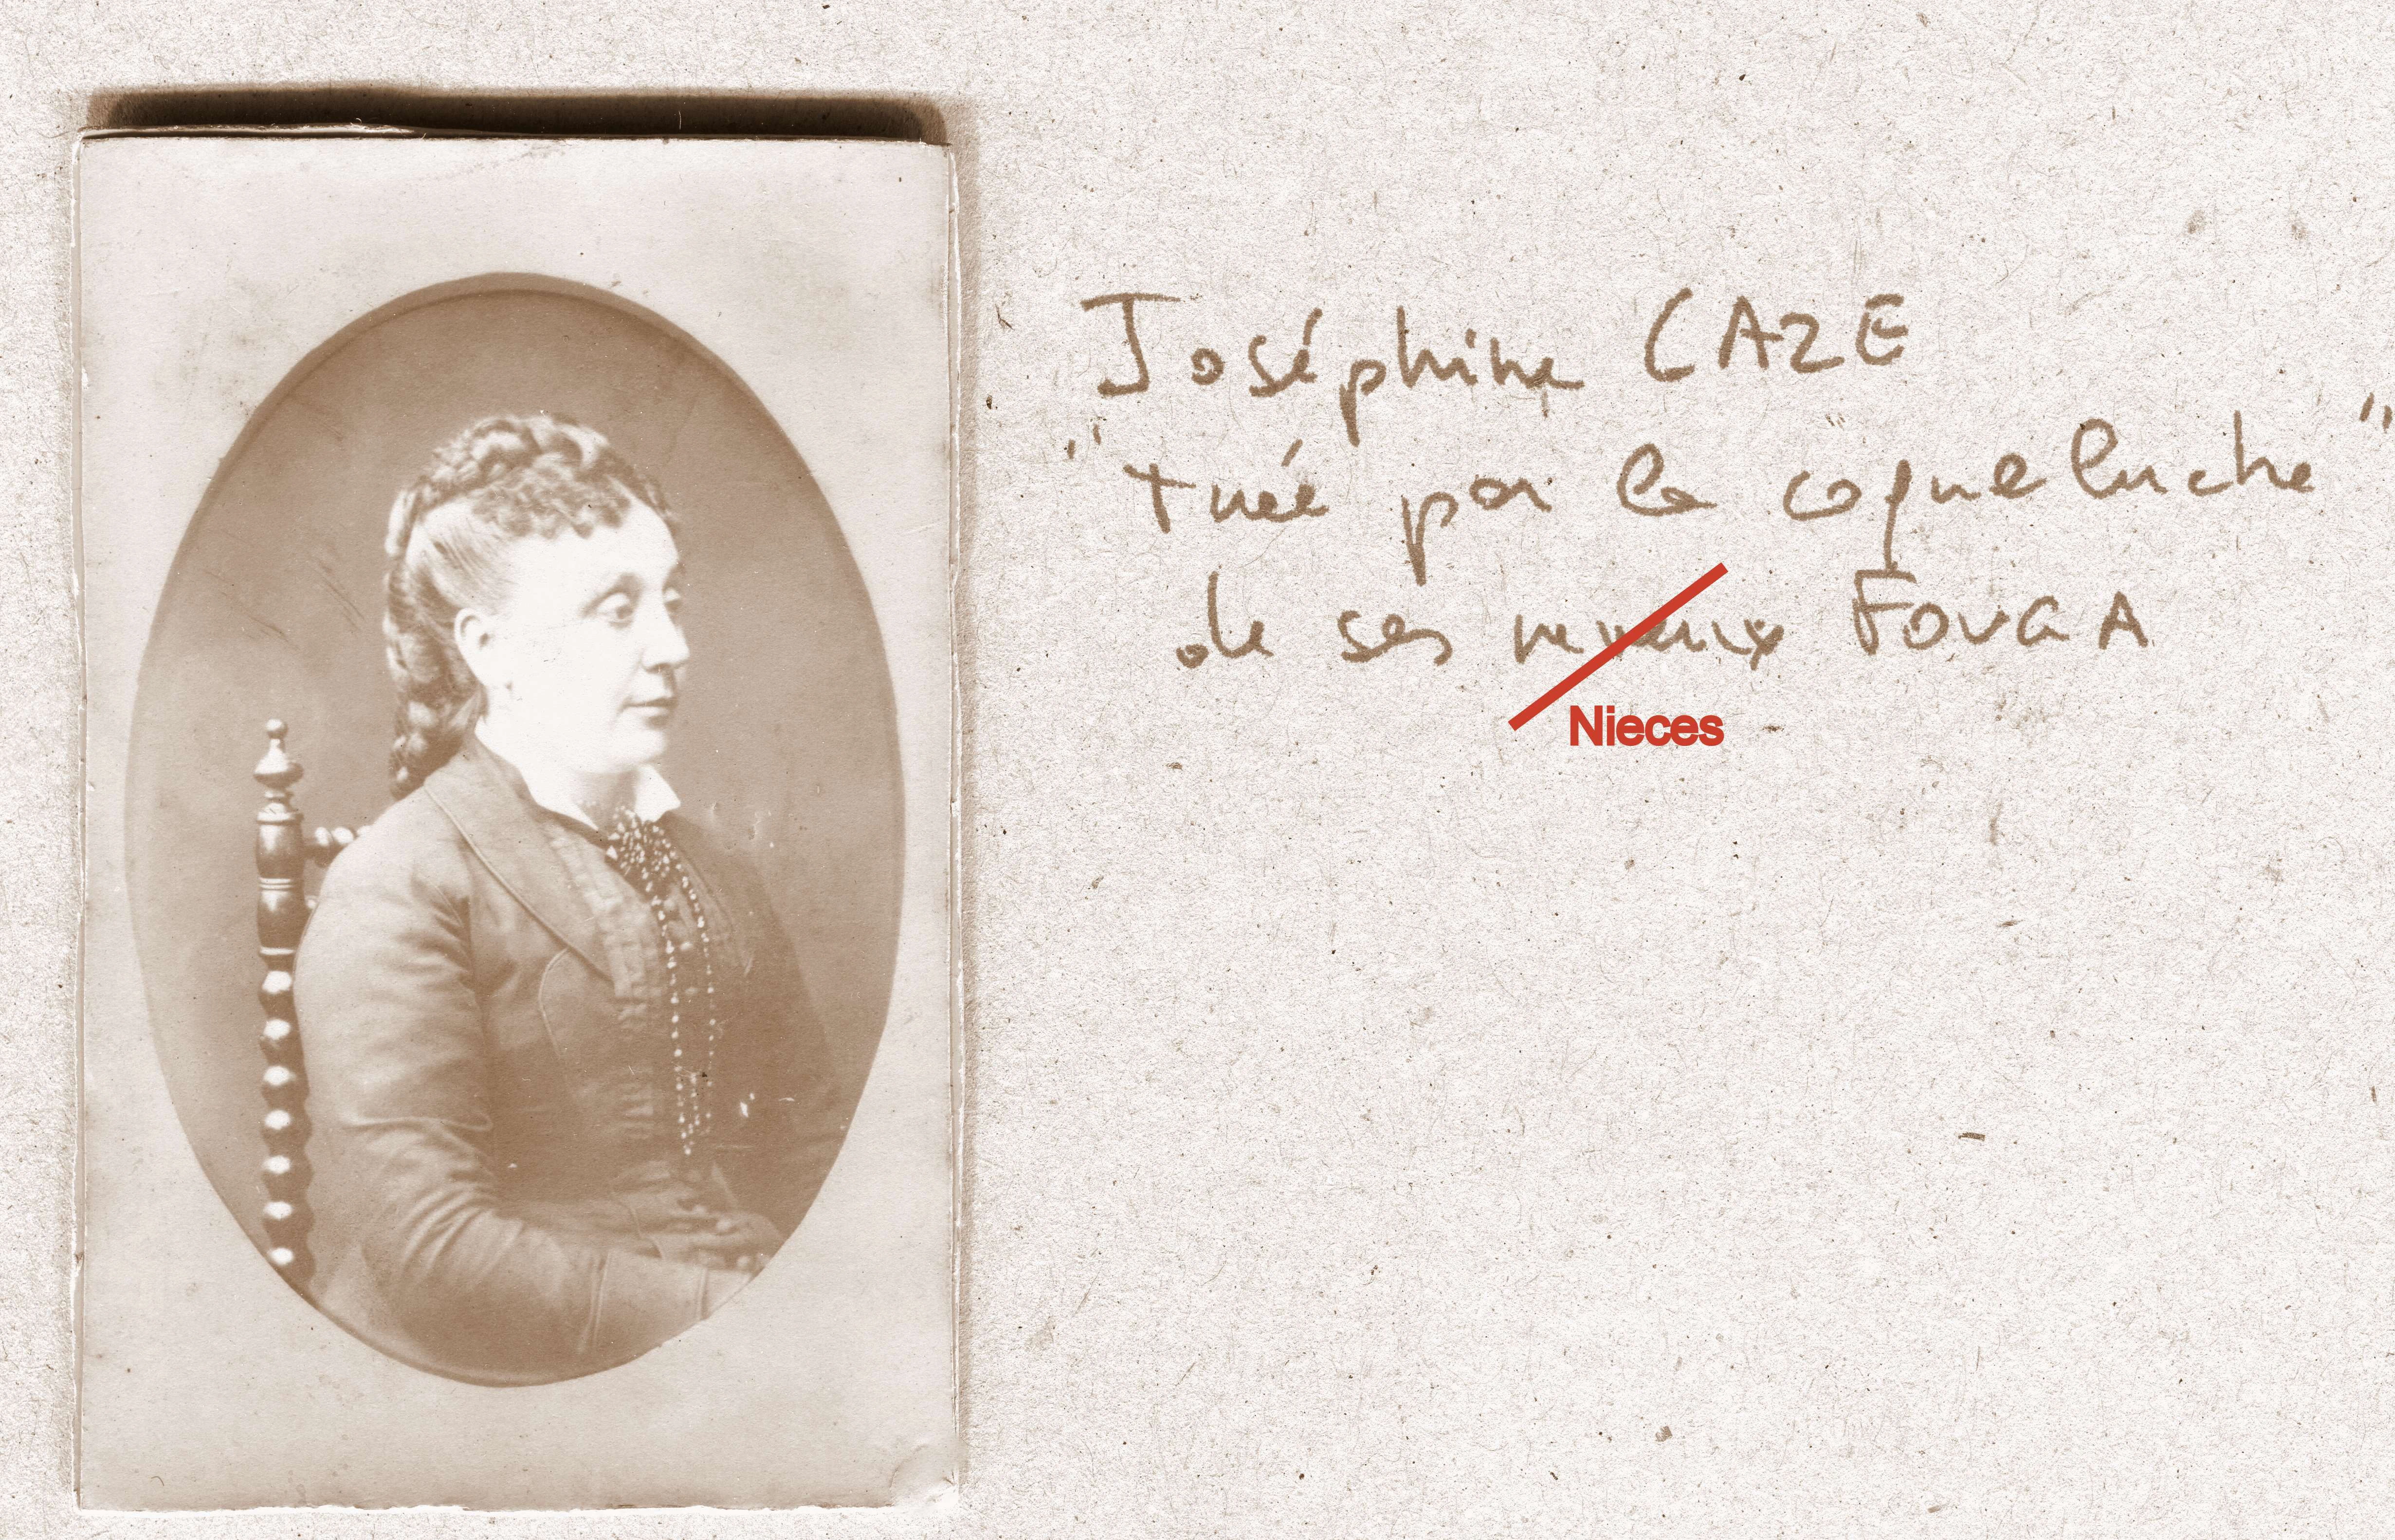 Joséphine CAZE
"tuée par la coqueluche"
de ses neveux FOUGA
Nieces